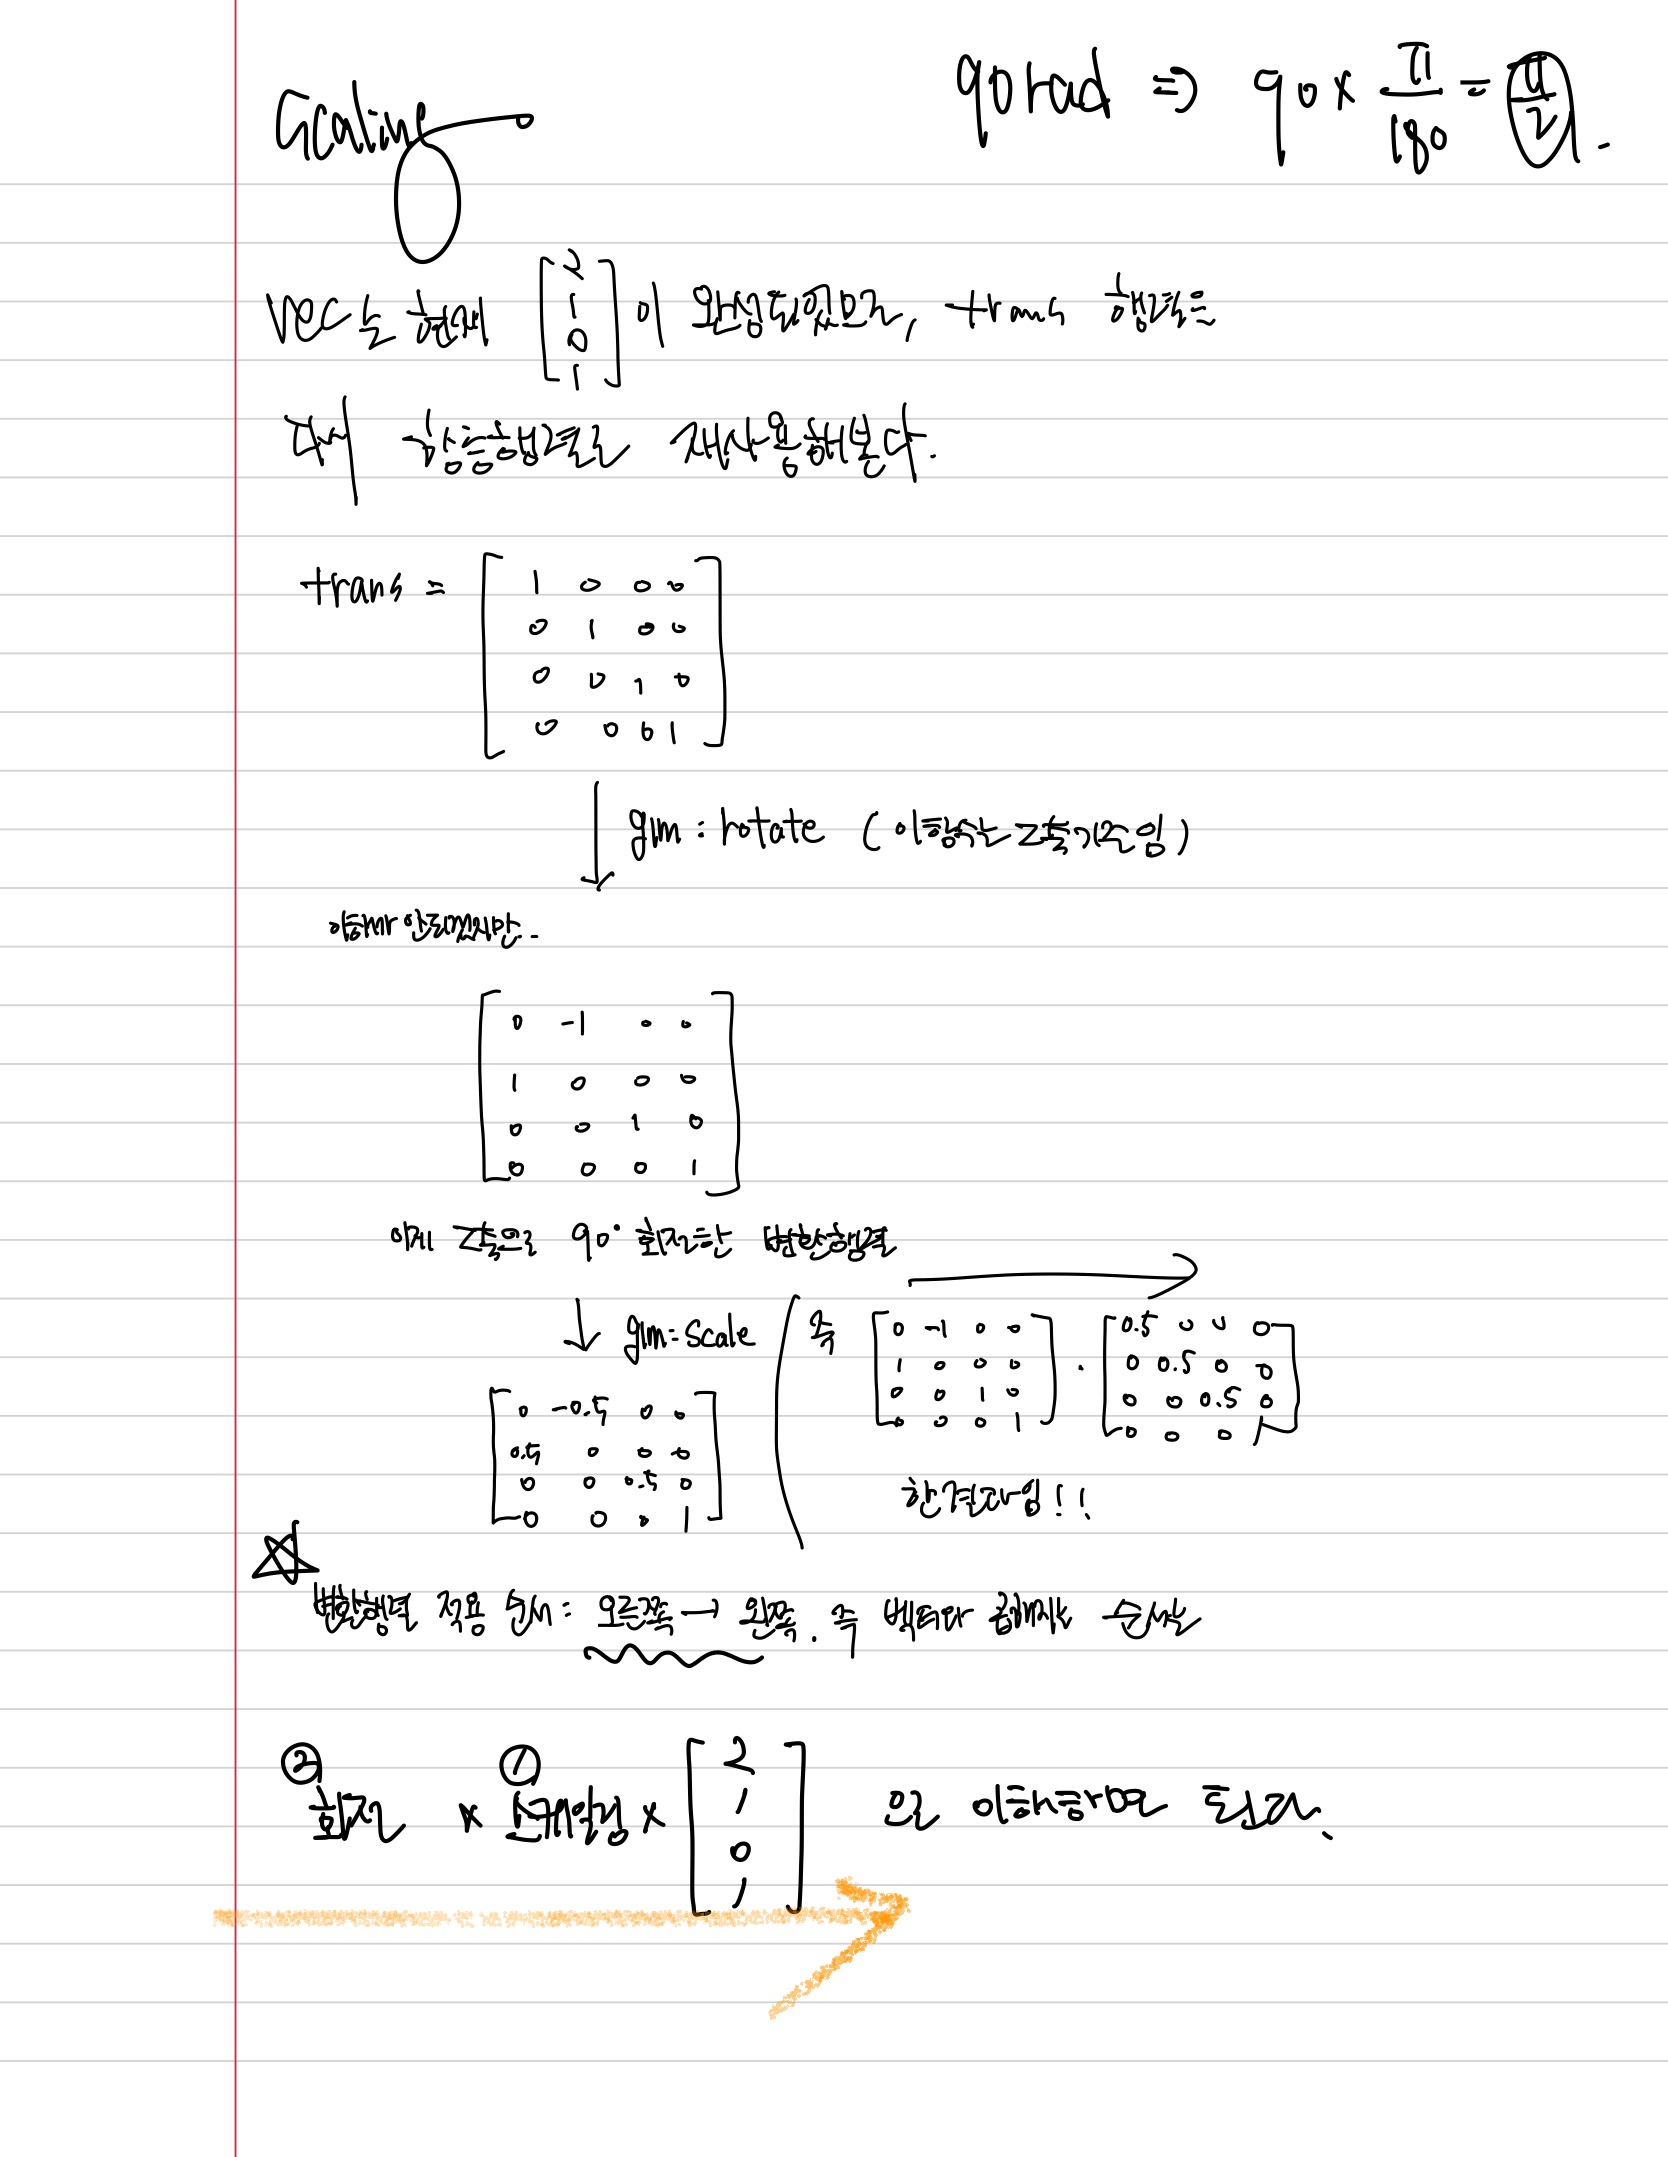 Scaling
90 rad ⇒ 90 × π/180 = π/2.
vec는 현재 [2 1 0 1] 이 완성되있으므로, trans 행렬을
다시 항등행렬로 재사용해본다.
trans = [1 0 0 0
0 1 0 0
0 0 1 0
0 0 0 1]
↓ glm : rotate (이 함수는 Z축 기준임)
이해가 안되겠지만..
[0 -1 0 0
1 0 0 0
0 0 1 0
0 0 0 1]
이게 Z축으로 90° 회전한 변환행렬
↓ glm : scale
[0 -0.5 0 0
0.5 0 0 0
0 0 0.5 0
0 0 0 1]
( 즉 [0 -1 0 0
1 0 0 0
0 0 1 0
0 0 0 1] · [0.5 0 0 0
0 0.5 0 0
0 0 0.5 0
0 0 0 1]
한 결과임!!
☆ 변환행렬 적용 순서 : 오른쪽 → 왼쪽. 즉 벡터와 곱해지는 순서는
② ①
회전 × 스케일링 × [2 1 0 1] 으로 이해하면 된다.